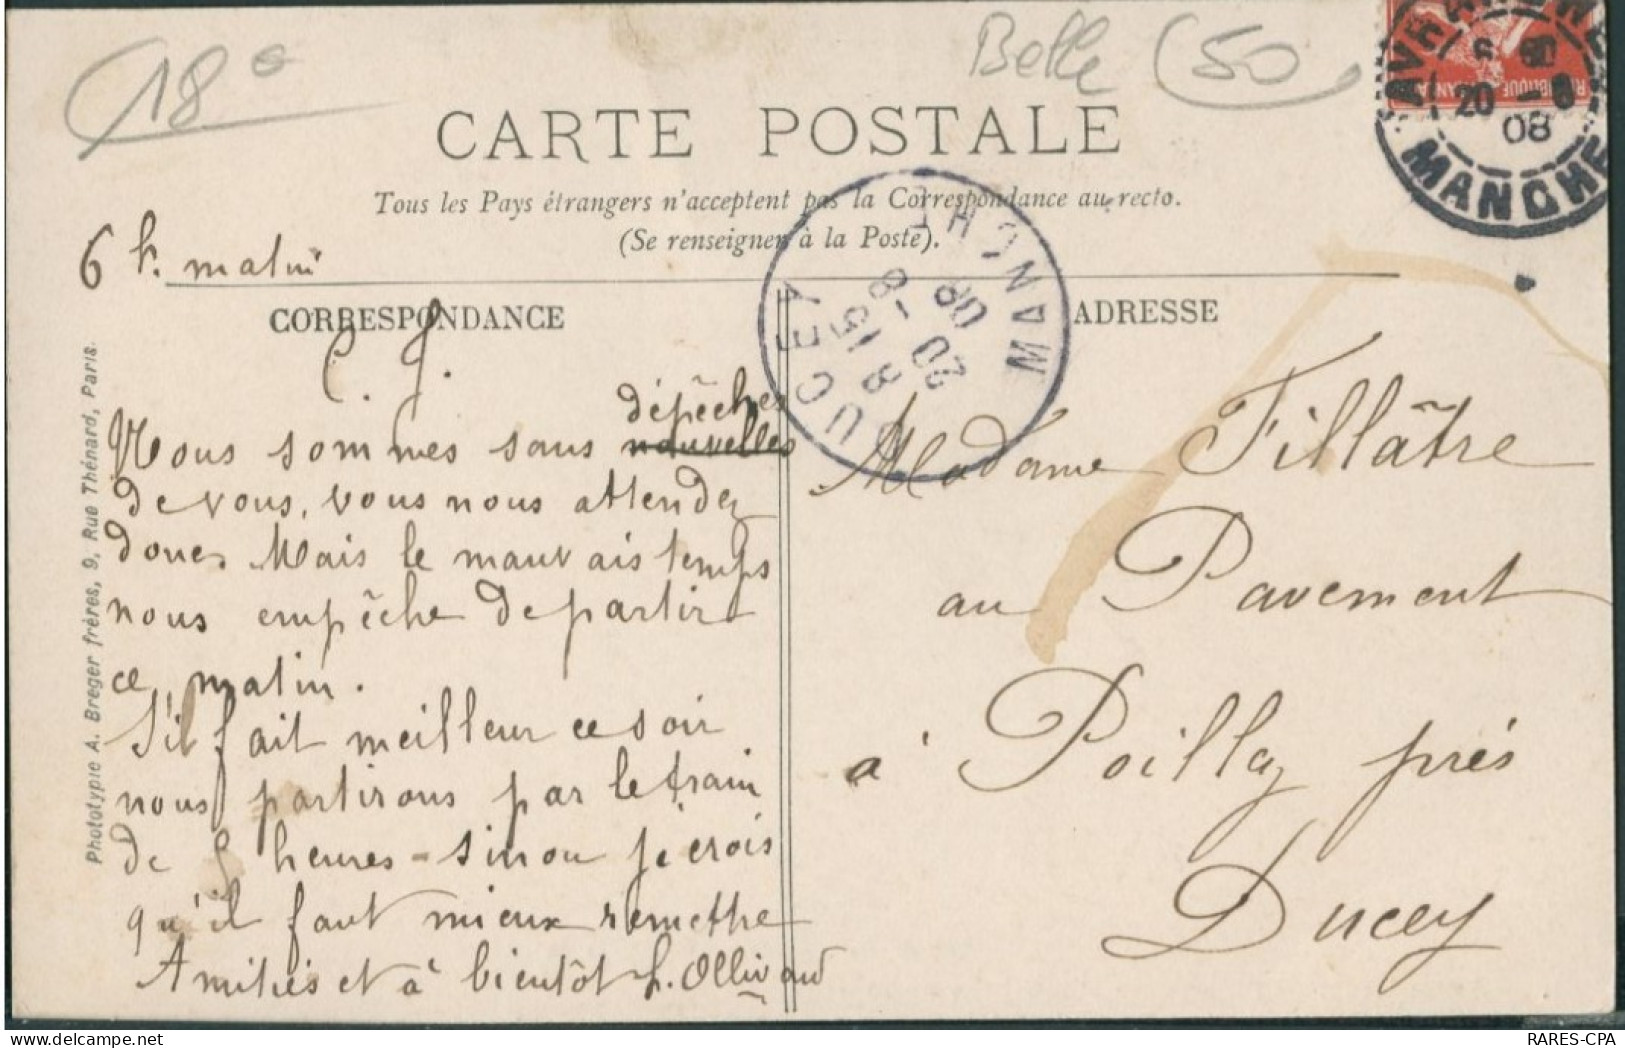 18e
Belle (50
CARTE POSTALE
Tous les Pays étrangers n'acceptent pas la Correspondance au recto.
(Se renseigner à la Poste).
AVRANCHES
20 -8
08
MANCHE
RÉPUBLIQUE FRANÇAISE
DUCEY
8 15
20 -8
08
MANCHE
6 h. matin
CORRESPONDANCE
C. J.
dépêches
Nous sommes sans nouvelles
de vous, vous nous attendez
donc. Mais le mauvais temps
nous empêche de partir
ce matin.
S'il fait meilleur ce soir
nous partirons par le train
de 5 heures - sinon je crois
qu'il faut mieux remettre
Amitiés et à bientôt h. Ollivaud
ADRESSE
Madame Fillâtre
au Pavement
à Poilley près
Ducey
Phototypie A. Breger frères, 9, Rue Thénard, Paris.
delcampe.net
RARES-CPA